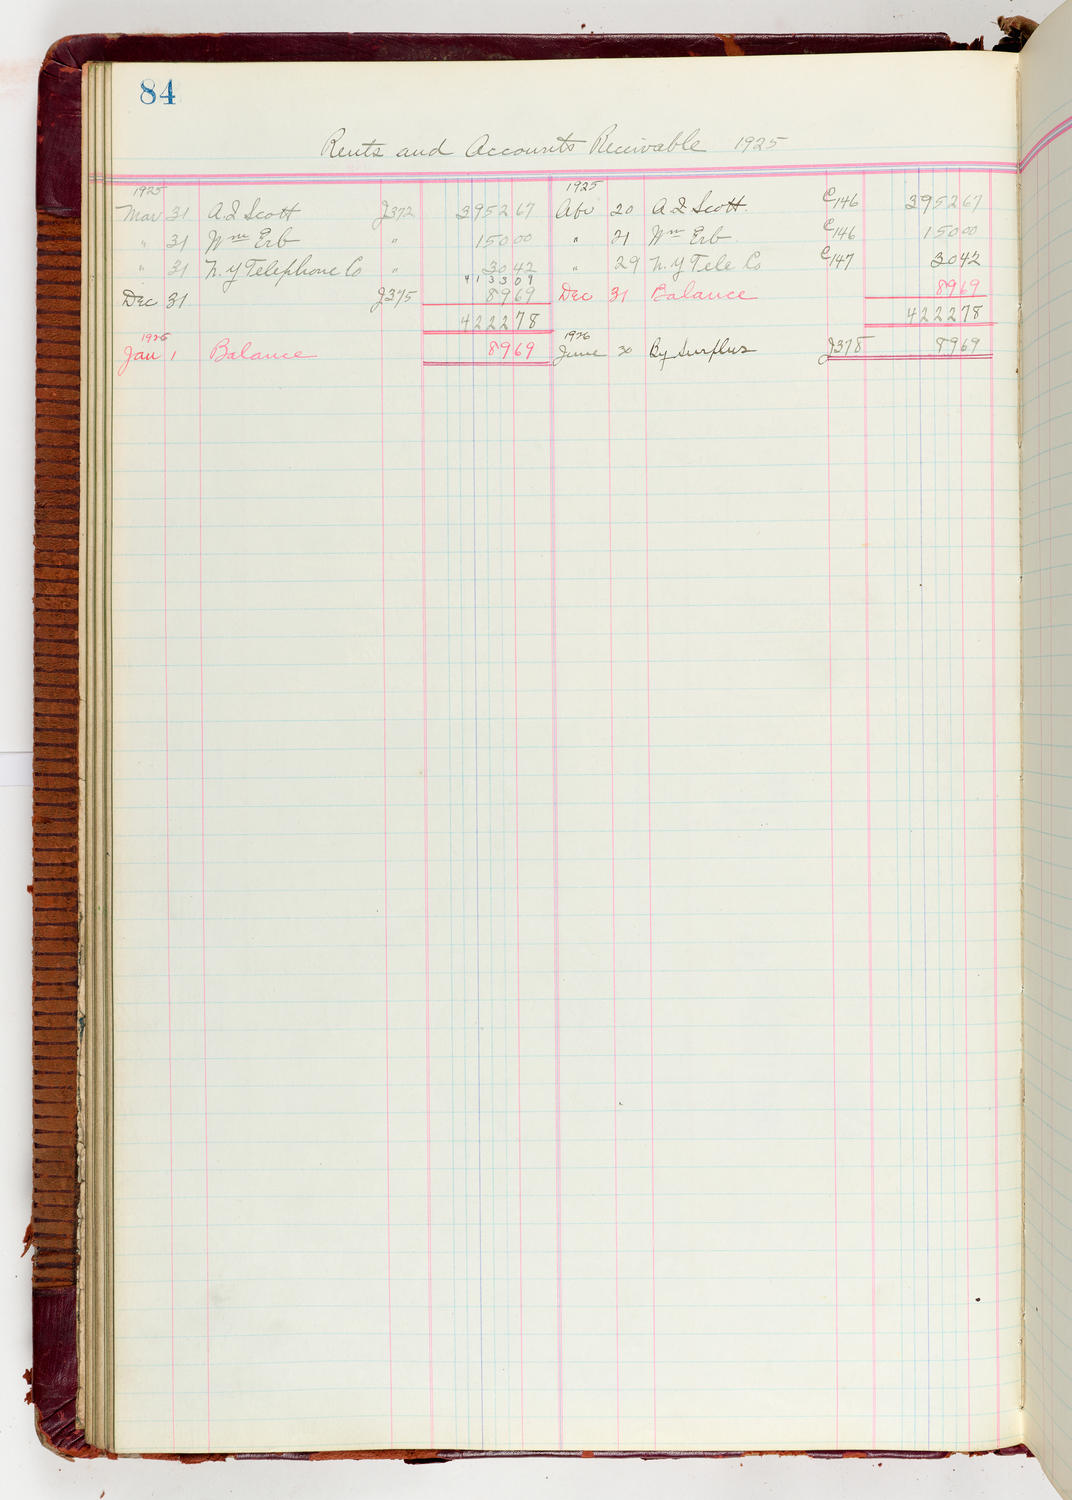 84
Rents and Accounts Receivable 1925
1925 1925
Mar 31 A. I. Scott J372 3952 67 Apr 20 A. I. Scott. C146 3952 67
" 31 Wm Erb " 150 00 " 21 Wm Erb C146 150 00
" 31 N. Y Telephone Co " 30 42 " 29 N. Y Tele Co C147 30 42
4133 09
Dec 31 J375 89 69 Dec 31 Balance 89 69
4222 78 4222 78
1926 1926
Jan 1 Balance 89 69 June 30 By Surplus J378 89 69